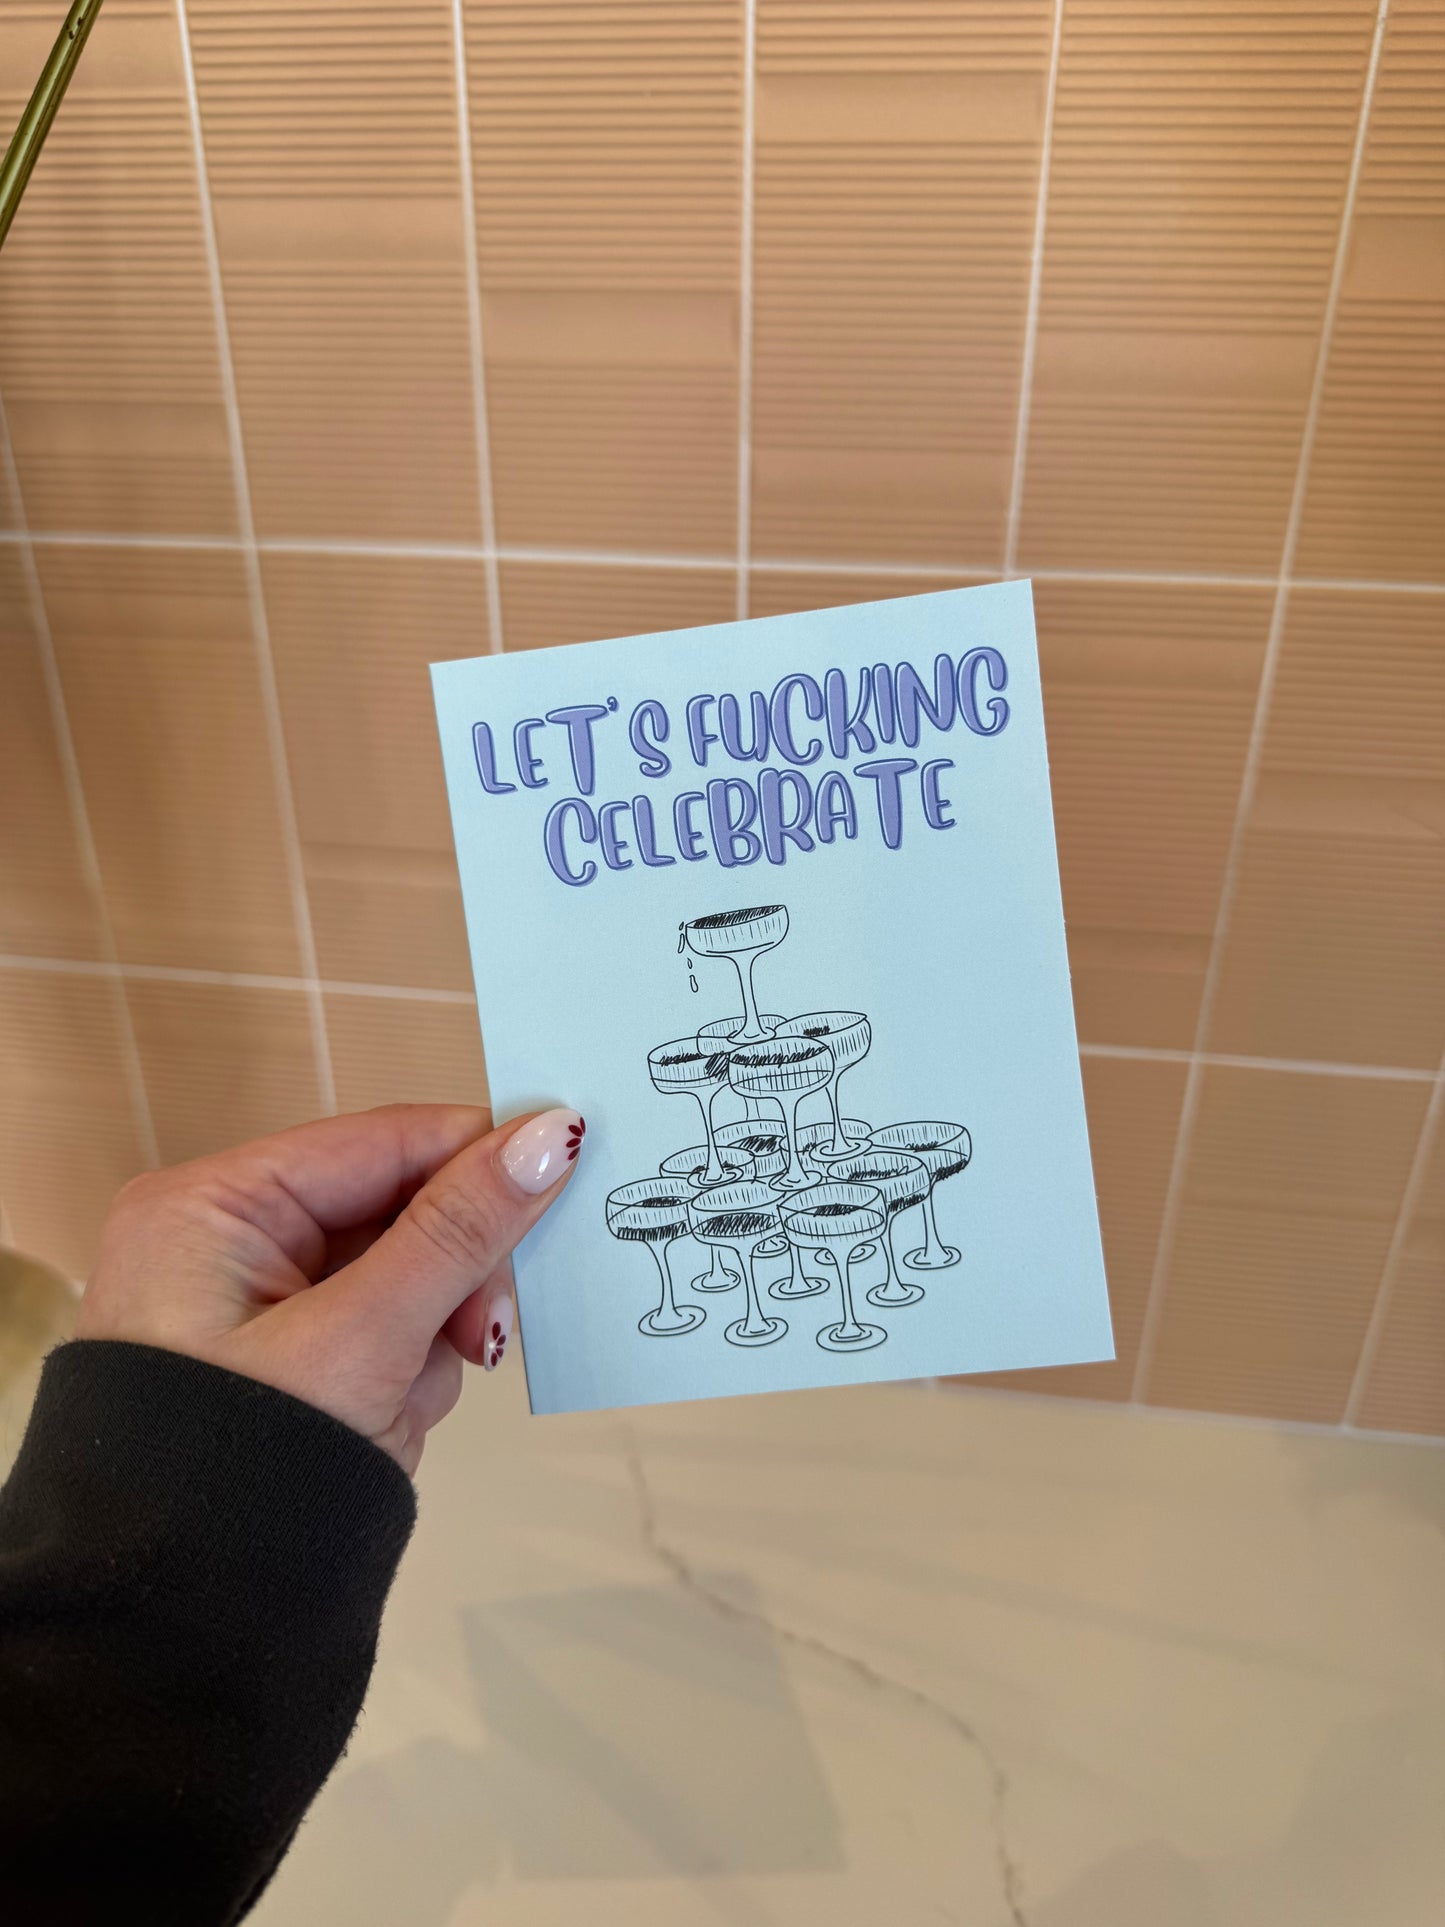 LET'S FUCKING
CELEBRATE